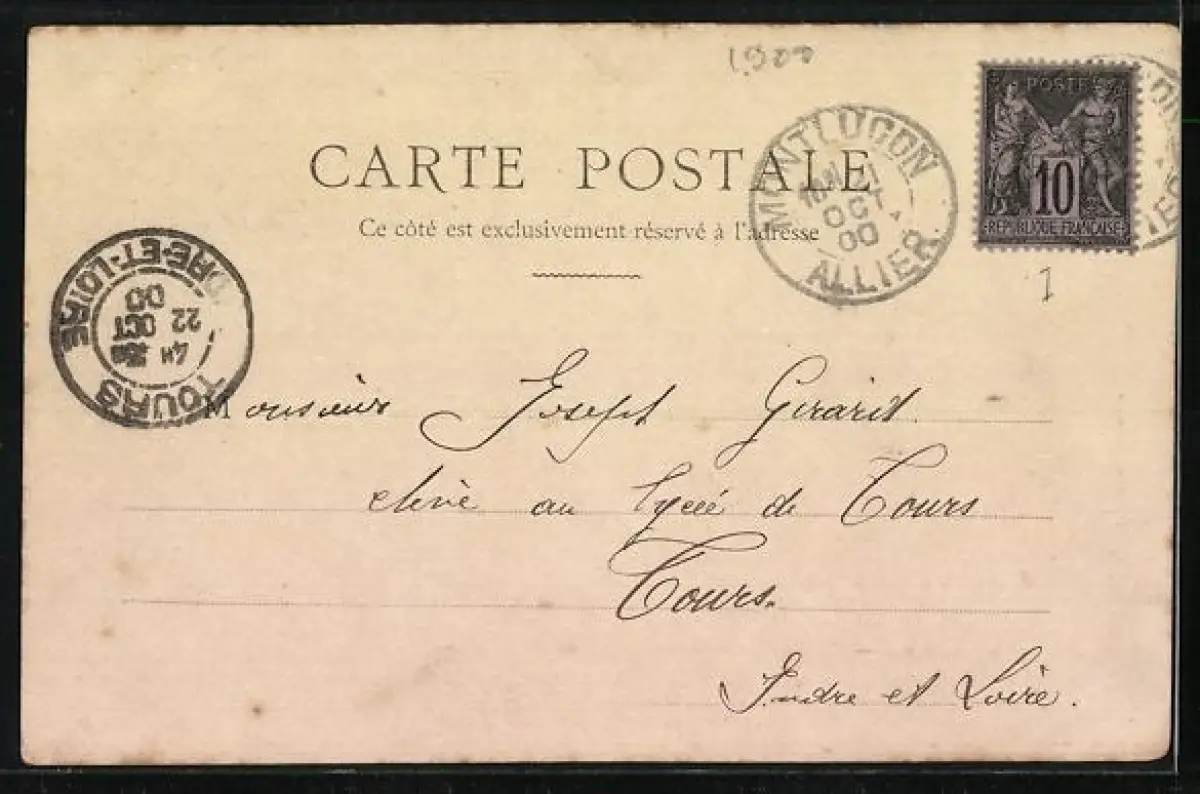 1900
POSTES
10
REPUBLIQUE FRANÇAISE
MONTLUCON
OCT.
00
ALLIER
CARTE POSTALE
Ce côté est exclusivement réservé à l'adresse
1
TOURS
4H
22 OCT
00
RE-ET-LOIRE
Monsieur Joseph Girard
elève au lycée de Tours
Tours.
Indre et Loire.